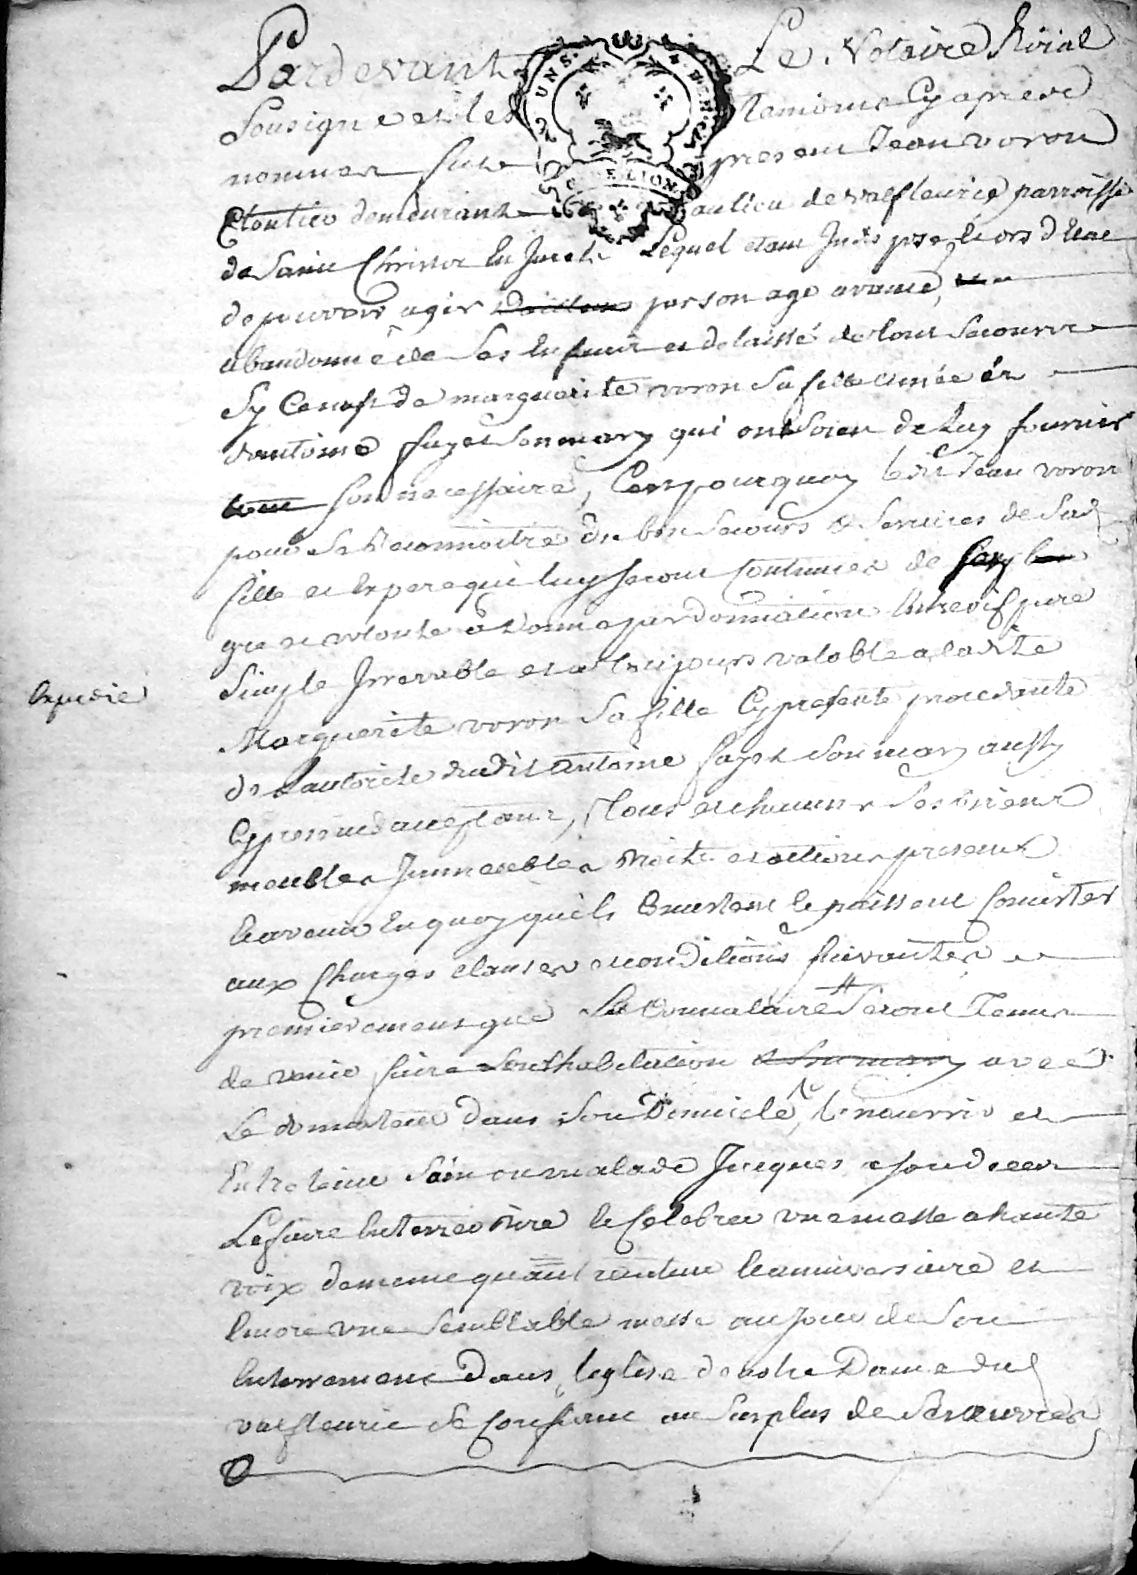 Pardevant Le Notaire Roial
Sousigne et les Temoins Cy apres
nommes fut present Jean voron
Cloutier demeurant au lieu de valfleurie parroisse
de Saint Christot En Jarest Lequel etant hors d'etat
de pouvoir agir par son age avancé,
abandonné de Ses Enfans et delaissé de tout Secours
Sy Ce n'est de marguerite voron Sa fille ainée et
d'antoine fayet Son mary qui ont Soien de luy fournir
Son necessaire, C'est pourquoy led. Jean voron
pour Se Reconnoitre des bon Secours & Services de Sad.
fille et Espere qu'ils luy feront Continuer de Son
gre et volonte a Donné par donnation Entrevifs pure
Simple Irrevocable et a toujours valable a ladite
Expedié
Marguerite voron Sa fille Cy presente procedante
de L'autorité dudit antoine fayet Son mary aussy
Cy present acceptant, Tous et chacuns Ses biens
meubles Immeubles Droits et actions presents
& avenir En quoy qu'ils Consistent & puissent Consister
aux Charges clauses & conditions Suivantes
premierement que La Donnataire Seront Tenus
de venir faire Leur habitation & Son mary avec
Le donnateur dans Son Domicile, le nourrir et
Entretenir Sain ou malade Jusques a Son deces
Le faire Enterrer Dire & Celebrer une messe a haute
voix de meme qu'au anniversaire et
Encore une Semblable messe au Jour de Son
Enterrement Dans l'eglise de notre Dame du
valfleurie Se Confiant au Surplus de Ses œuvres